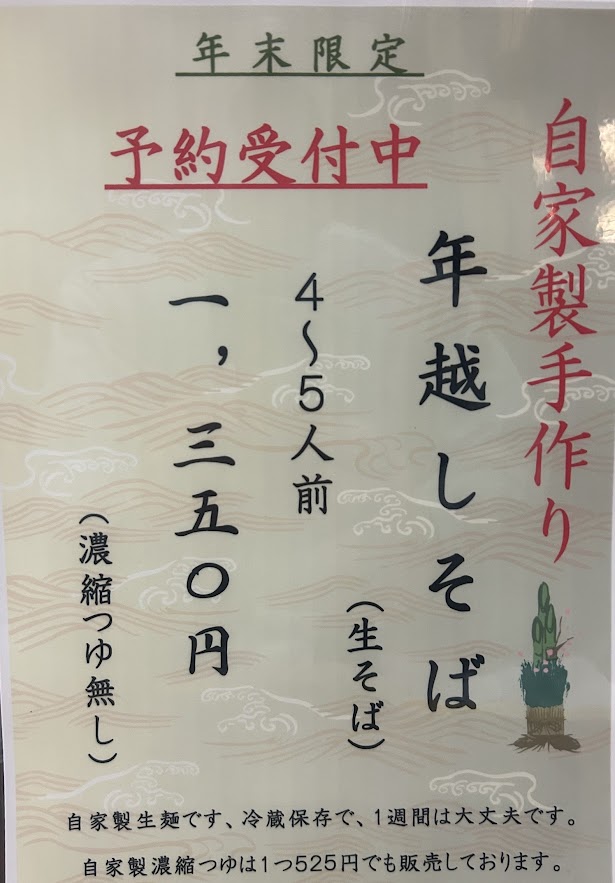 年末限定
予約受付中
自家製手作り
年越しそば
(生そば)
4～5人前
一,三五〇円
(濃縮つゆ無し)
自家製生麺です、冷蔵保存で、1週間は大丈夫です。
自家製濃縮つゆは1つ525円でも販売しております。